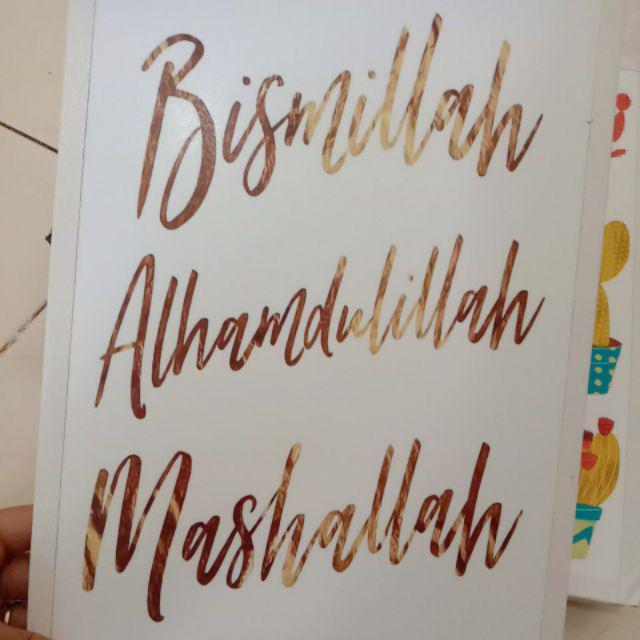 Bismillah
Alhamdulillah
Mashallah